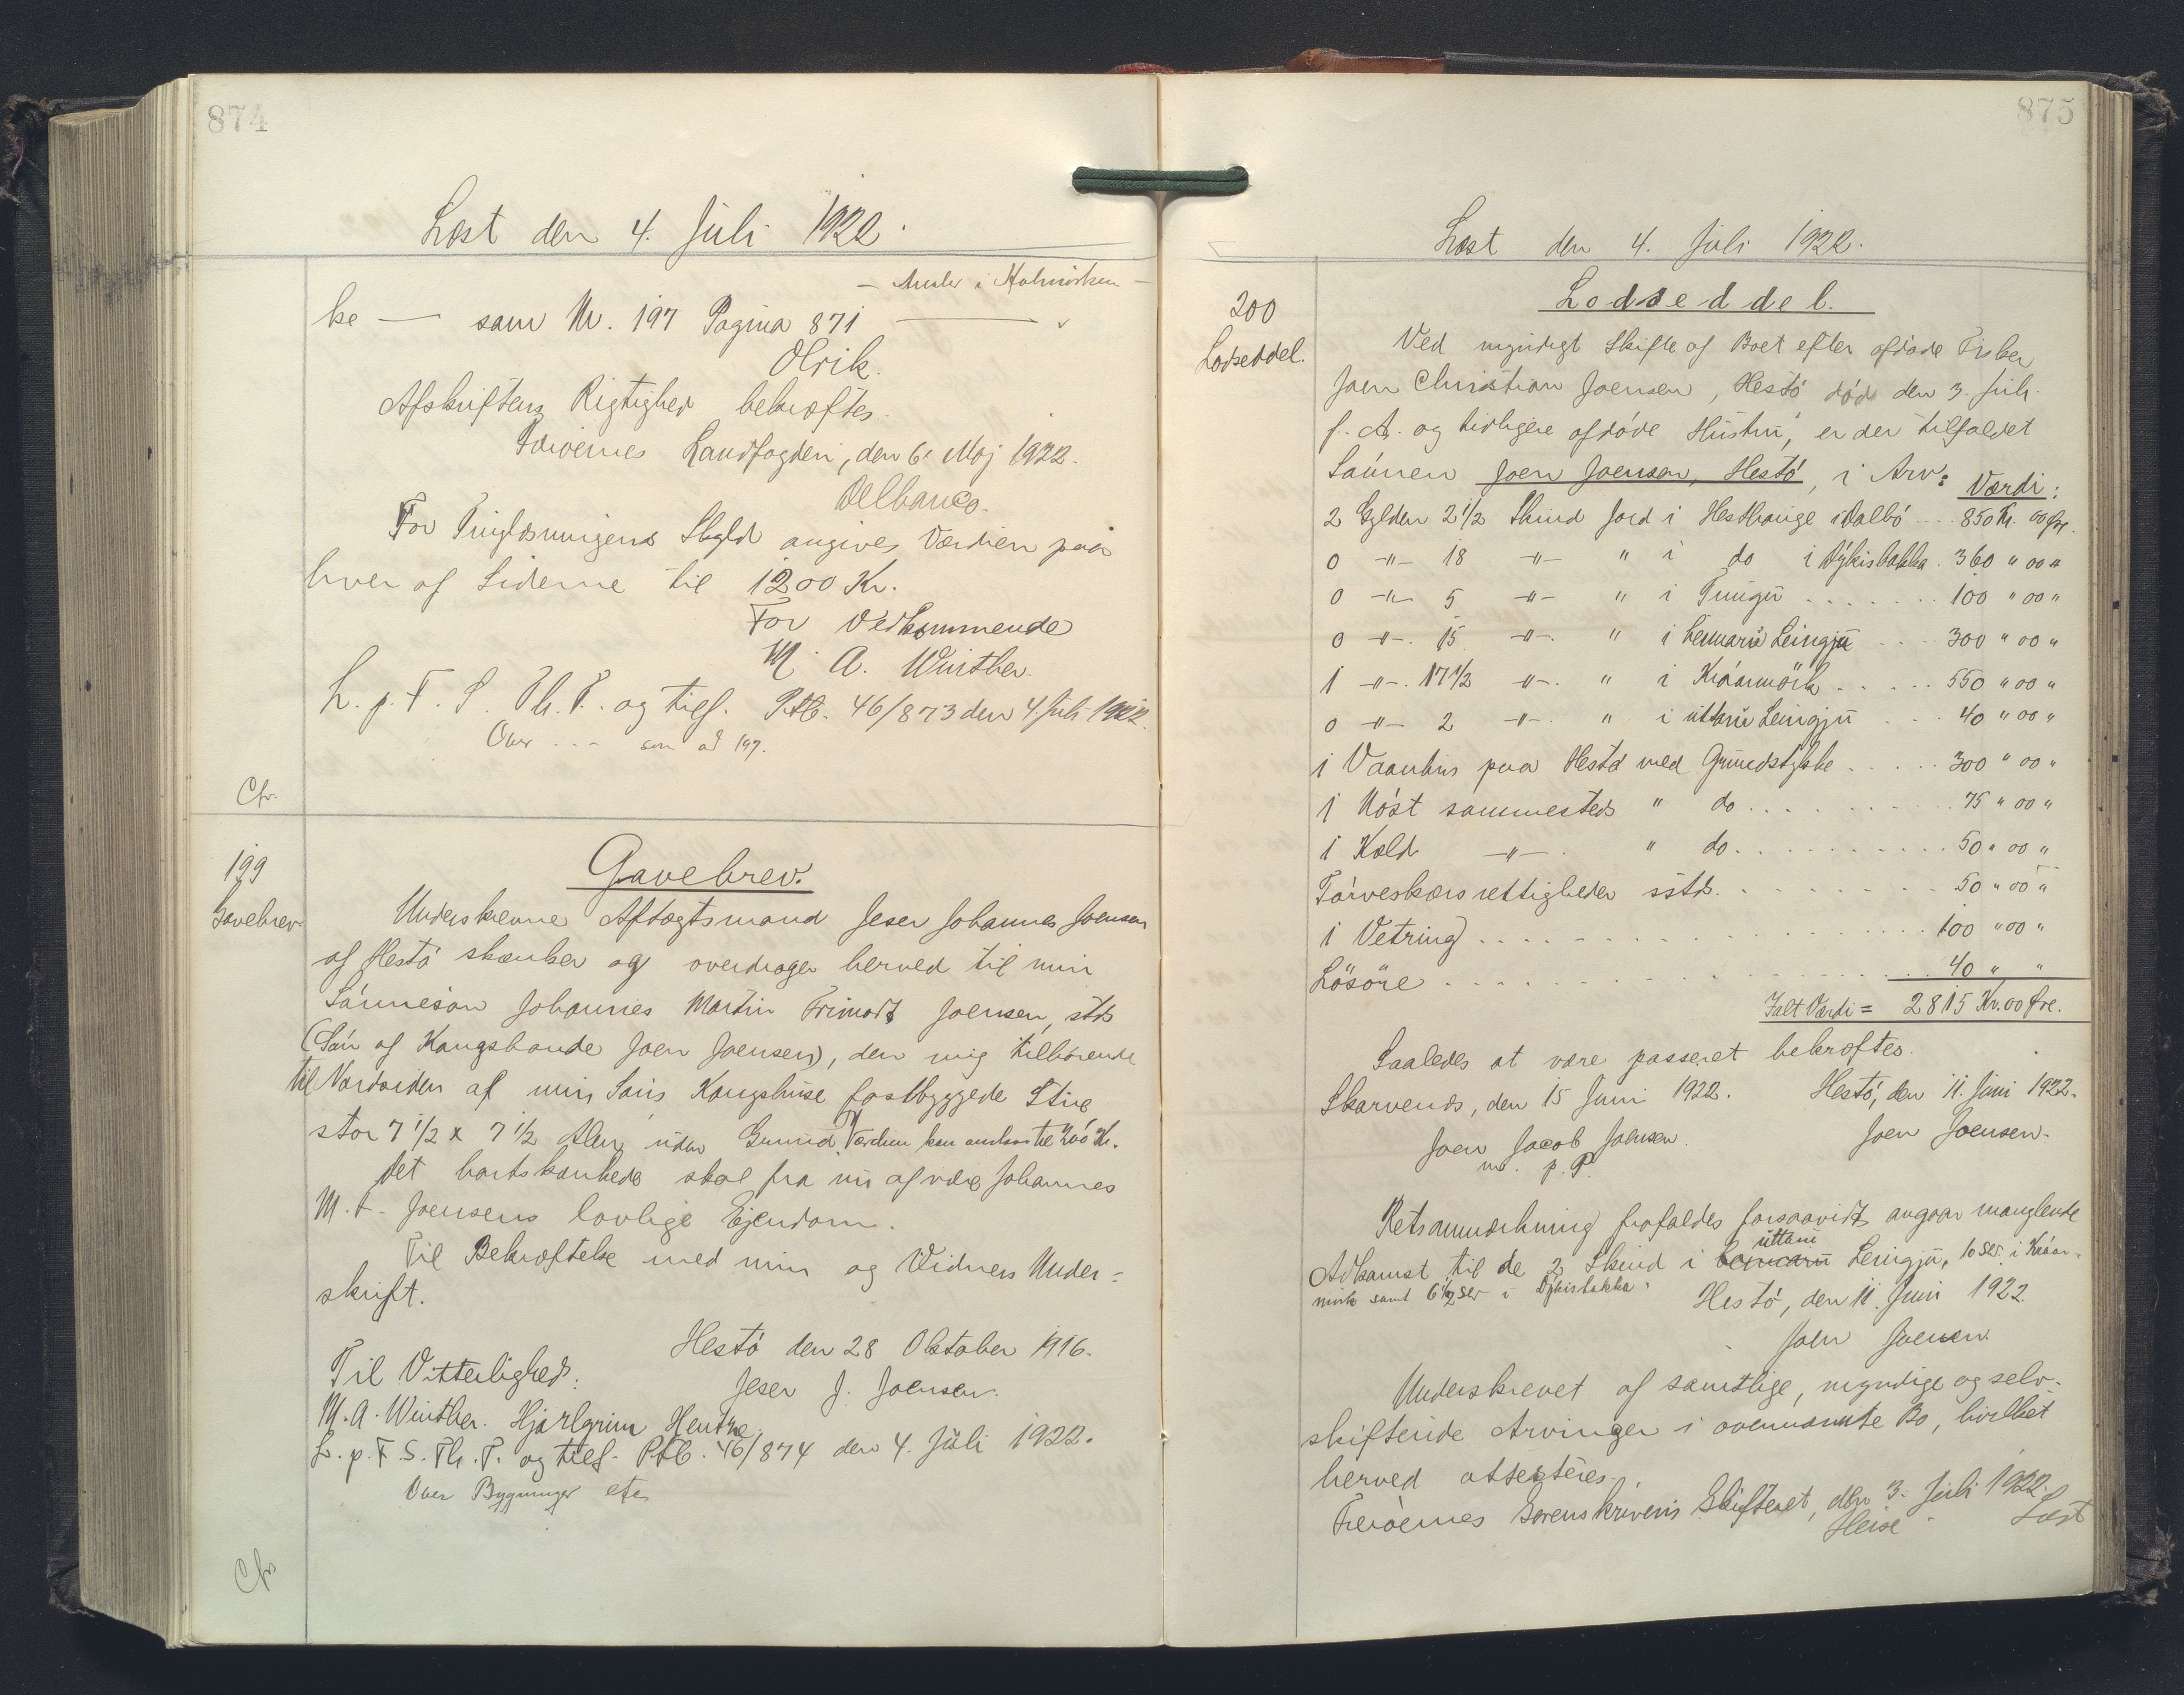 874
Læst den 4. Juli 1922.
ke — sam Nr. 197 Pagina 871
Olrik.
Afskriftens Rigtighed bekræftes.
Færøernes Landfogderi, den 6' Maj 1922.
Delbanco.
For Tinglæsningens Skyld angives Værdien paa
hver af Siderne til 1200 Kr.
For Vedkommende
M. A. Winther.
L. p. F. S. Th. T. og tilf. Ptb. 46/873 den 4 Juli 1922.
Over - - - som ad 197.
Cfr.
199
Gavebrev.
Gavebrev.
Underskrevne Aftægtsmand Jeser Johannes Joensen
af Hestö skænker og overdrager herved til min
Sönnesön Johannes Martin Trimodt Joensen, stds
(Sön af Kongsbonde Joen Joensen), den mig tilhörende
til Nordsiden af min Söns Kongshuse fastbyggede Stue
stor 7 1/2 x 7 1/2 Alen uden Grund. Værdien kan ansættes til 200 Kr.
Det bortskænkede skal fra nu af være Johannes
M. T. Joensens lovlige Ejendom.
Til Bekræftelse med min og Vidners Under=
skrift.
Hestö den 28 Oktober 1916.
Til Vitterlighed:
Jeser J. Joensen.
M. A. Winther. Hjarlgrim Hentze.
L. p. F. S. Th. T. og tilf. Ptb. 46/874 den 4. Juli 1922.
Over Bygninger etc
Cfr
875
Læst den 4. Juli 1922.
200
Lodseddel.
Lodseddel.
Ved myndigt Skifte af Boet efter afdöde Fisker
Joen Christian Joensen, Hestö död den 3. Juli
f. A. og tidligere afdöde Hustru, er der tilfaldet
Sönnen Joen Joensen, Hestö, i Arv: Værdi:
2 Gylden 2 1/2 Skind Jord i Hesthauge i Dalbö ... 850 Kr. 00 Øre.
0 -"- 18 -"- " i do i Dýkisbakka . 360 " 00 "
0 -"- 5 -"- " i Tungu ....... 100 " 00 "
0 -"- 15 -"- " i hemaru Leingju ... 300 " 00 "
1 -"- 17 1/2 -"- " i Kráarmörk ..... 550 " 00 "
0 -"- 2 -"- " i úttaru Leingju ... 40 " 00 "
1 Vaanhus paa Hestö med Grundstykke ..... 300 " 00 "
1 Nöst sammesteds " do .......... 75 " 00 "
1 Kæld -"- " do .......... 50 " 00 "
Törveskærsrettigheder sstds. ......... 50 " 00 "
1 Vetring ................ 100 " 00 "
Lösöre ................ 40 " "
Ialt Værdi = 2815 Kr. 00 Øre.
Saaledes at være passeret bekræftes.
Skarvenæs, den 15 Juni 1922. Hestö, den 11. Juni 1922.
Joen Jacob Joensen. Joen Joensen.
m. p. P.
Retsanmærkning frafaldes forsaavidt angaar manglende
Adkomst til de 2 Skind i hemaru úttaru Leingju, 10 Sk. i Kráar-
mörk samt 6 1/2 Sk i Dýkisbakka.
Hestö, den 11. Juni 1922.
Joen Joensen.
Underskrevet af samtlige, myndige og selv-
skiftende Arvinger i ovennævnte Bo, hvilket
herved attesteres.
Færöernes Sorenskriveri Skifteret, den 3. Juli 1922.
Heise
Læst